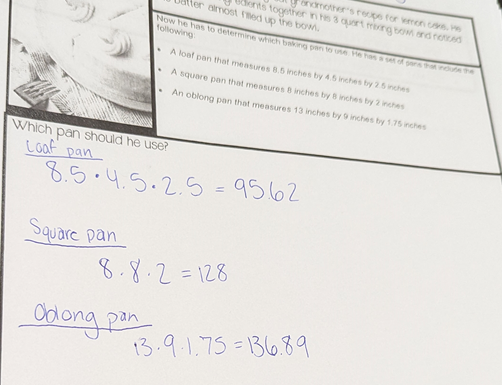 grandmother's recipe for lemon cake. He
edients together in his 3 quart mixing bowl and noticed
batter almost filled up the bowl.
Now he has to determine which baking pan to use. He has a set of pans that include the
following:
• A loaf pan that measures 8.5 inches by 4.5 inches by 2.5 inches
• A square pan that measures 8 inches by 8 inches by 2 inches
• An oblong pan that measures 13 inches by 9 inches by 1.75 inches
Which pan should he use?
Loaf pan
8.5 · 4.5 · 2.5 = 95.62
Square pan
8 · 8 · 2 = 128
Oblong pan
13 · 9 · 1.75 = 136.89